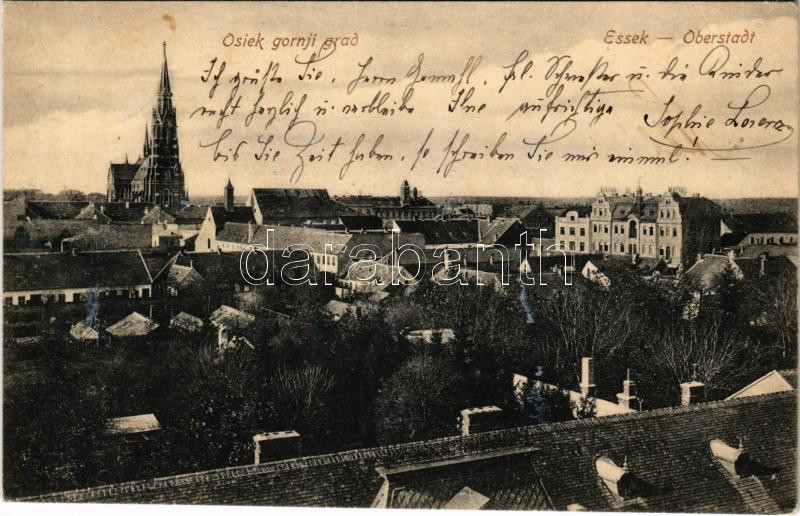 Osiek gornji grad
Essek — Oberstadt
Ich grüße Sie, Herrn Gemahl, Frl. Schwester u. die Kinder
recht herzlich u. verbleibe Ihre aufrichtige
Sophie Lorenz
bis Sie Zeit haben, so schreiben Sie mir einmal.
darabanth